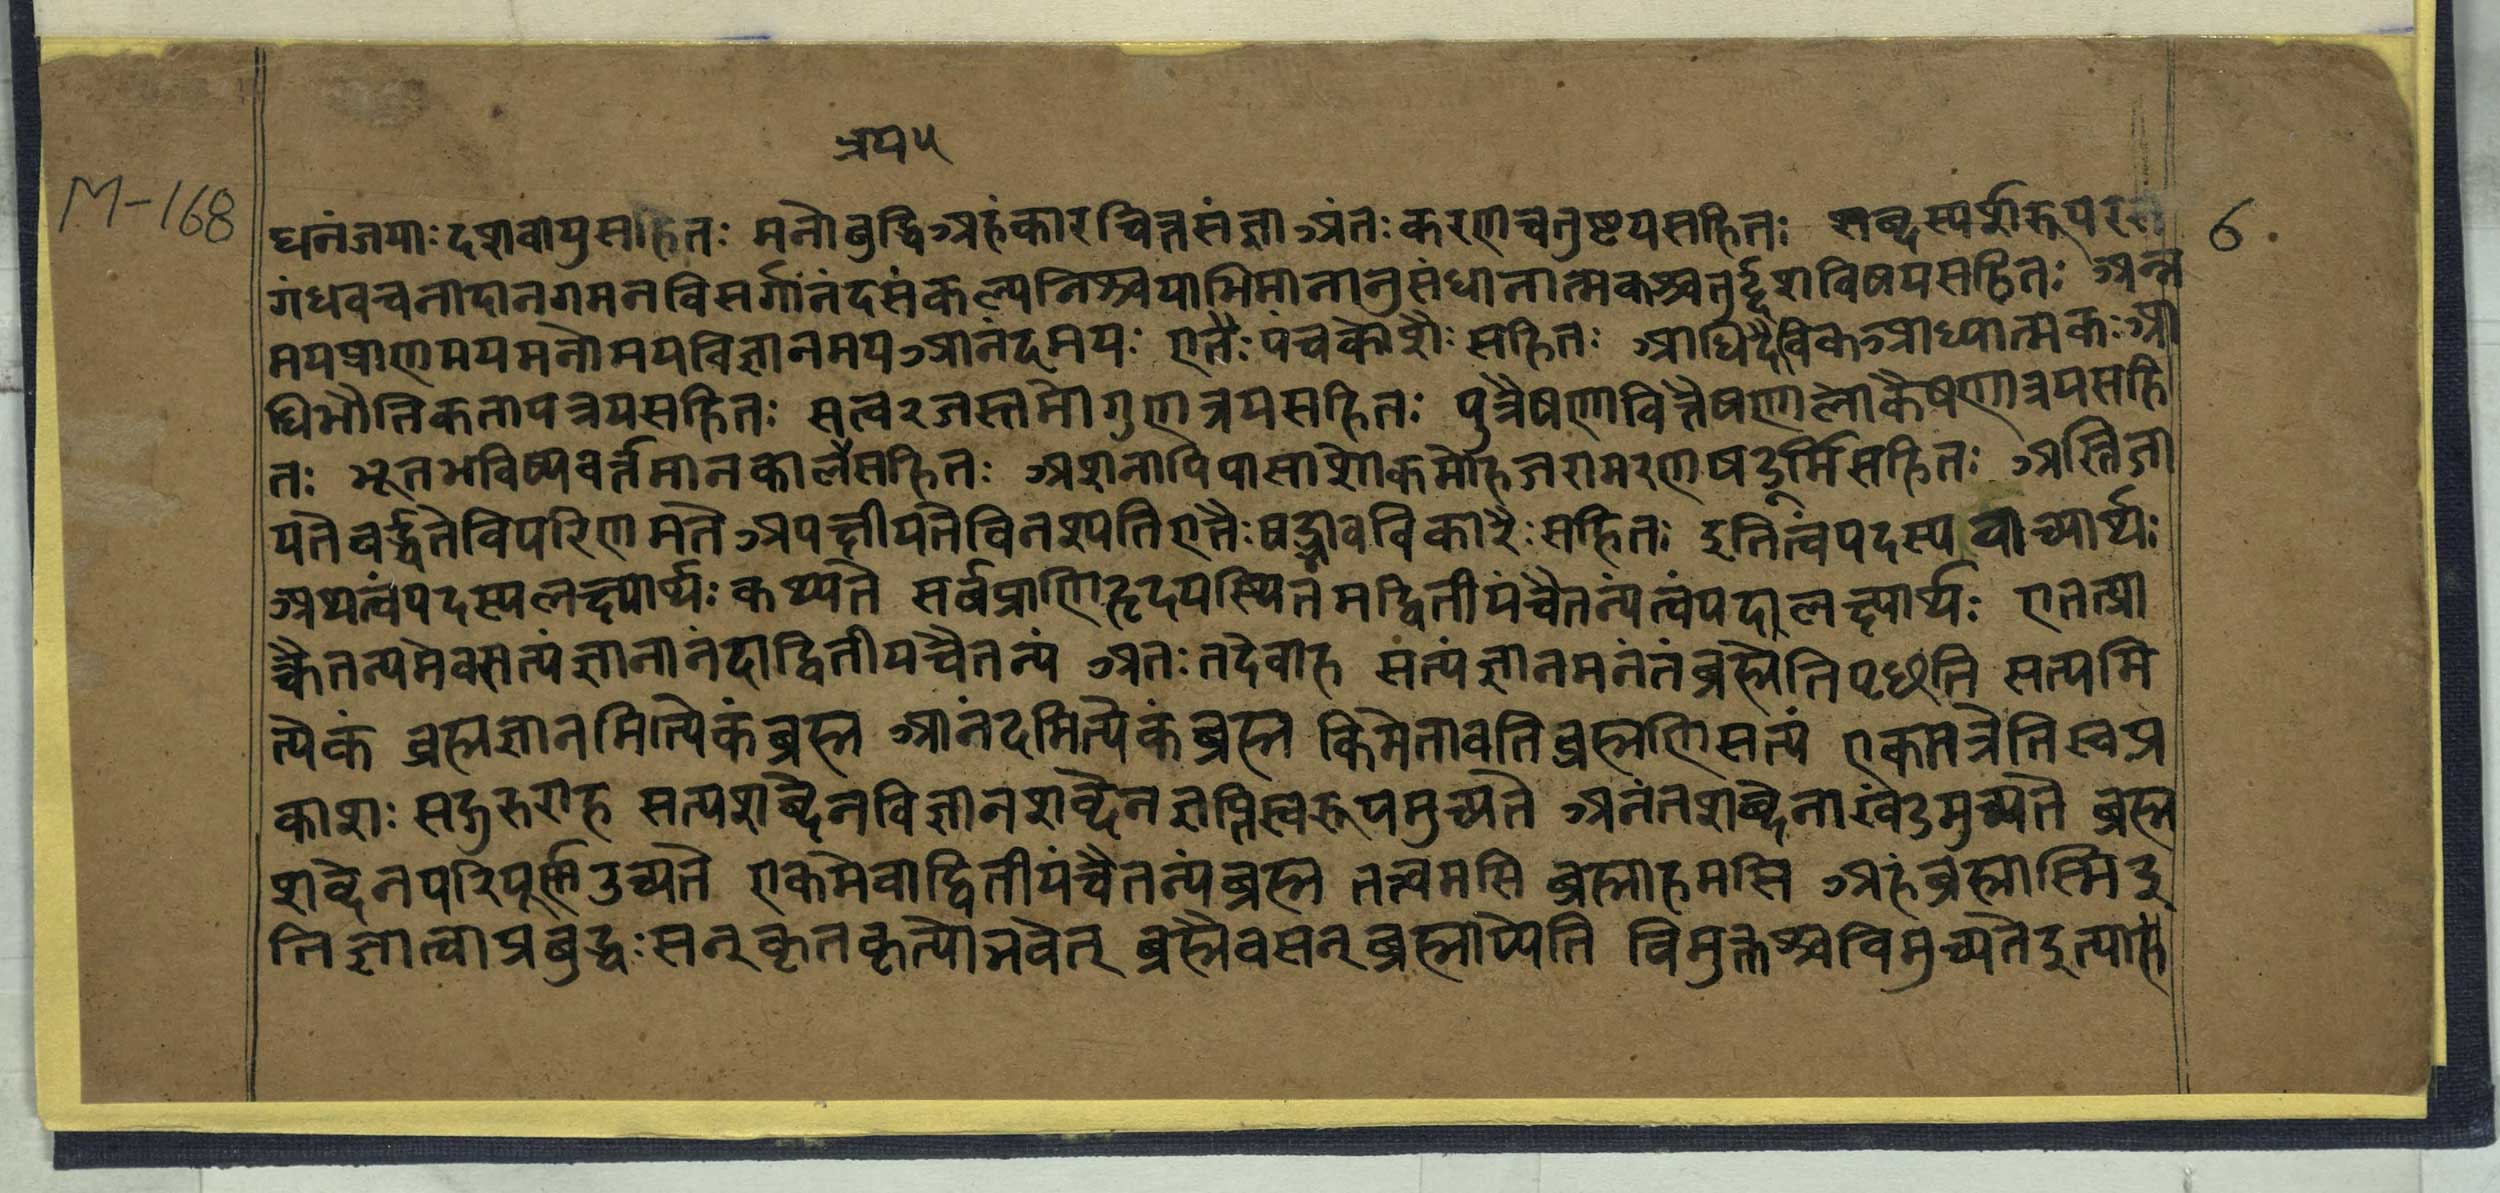 त्रप५
M-168
6
धनंजयाः दशवायुसहितः मनोबुद्धिअहंकारचित्तसंज्ञाअंतःकरणचतुष्टयसहितः शब्दस्पर्शरूपरस
गंधवचनादानगमनविसर्गानंदसंकल्पनिश्चयाभिमानानुसंधानात्मकश्चतुर्द्दशविषयसहितः अन्न
मयप्राणमयमनोमयविज्ञानमयआनंदमयः एतैःपंचकोशैः सहितः आधिदैविकआध्यात्मकःआ
धिभौतिकतापत्रयसहितः सत्वरजस्तमोगुणत्रयसहितः पुत्रैषणावित्तैषणालोकैषणात्रयसहि
तः भूतभविष्यवर्त्तमानकालैसहितः अशनापिपासाशोकमोहजरामरणषडूर्मिसहितः अस्तिजा
यतेवर्द्धतेविपरिणमतेअपक्षीयतेविनश्यतिएतैःषड्भावविकारैःसहितः इतित्वंपदस्यवाच्यार्थः
अथत्वंपदस्यलक्ष्यार्थः कथ्यते सर्वप्राणिहृदयस्थितमद्वितीयंचैतन्यंत्वंपदालक्ष्यार्थः एतत्प्रा
च्चैतत्यमेवसत्यंज्ञानानंदाद्वितीयचैतन्यं अतःतदेवाह सत्यंज्ञानमनंतंब्रह्मेतिपृछति सत्यमि
त्येकं ब्रह्मज्ञानमित्येकंब्रह्म आनंदमित्येकंब्रह्म किमेतावतिब्रह्मणिसत्यं एकमत्रेतिस्वप्र
काशः सद्गुरुराह सत्यशब्देनविज्ञानशब्देनज्ञप्तिस्वरूपमुच्यते अनंतशब्देनाखंडमुच्यते ब्रह्म
शब्देनपरिपूर्णउच्यते एकमेवाद्वितीयंचैतन्यंब्रह्म तत्त्वमसि ब्रह्माहमस्मि अहंब्रह्मास्मिइ
तिज्ञात्वाप्रबुद्धःसन्कृतकृत्योभवेत् ब्रह्मैवसन्ब्रह्माप्येति विमुक्तश्चविमुच्यतेइत्याह